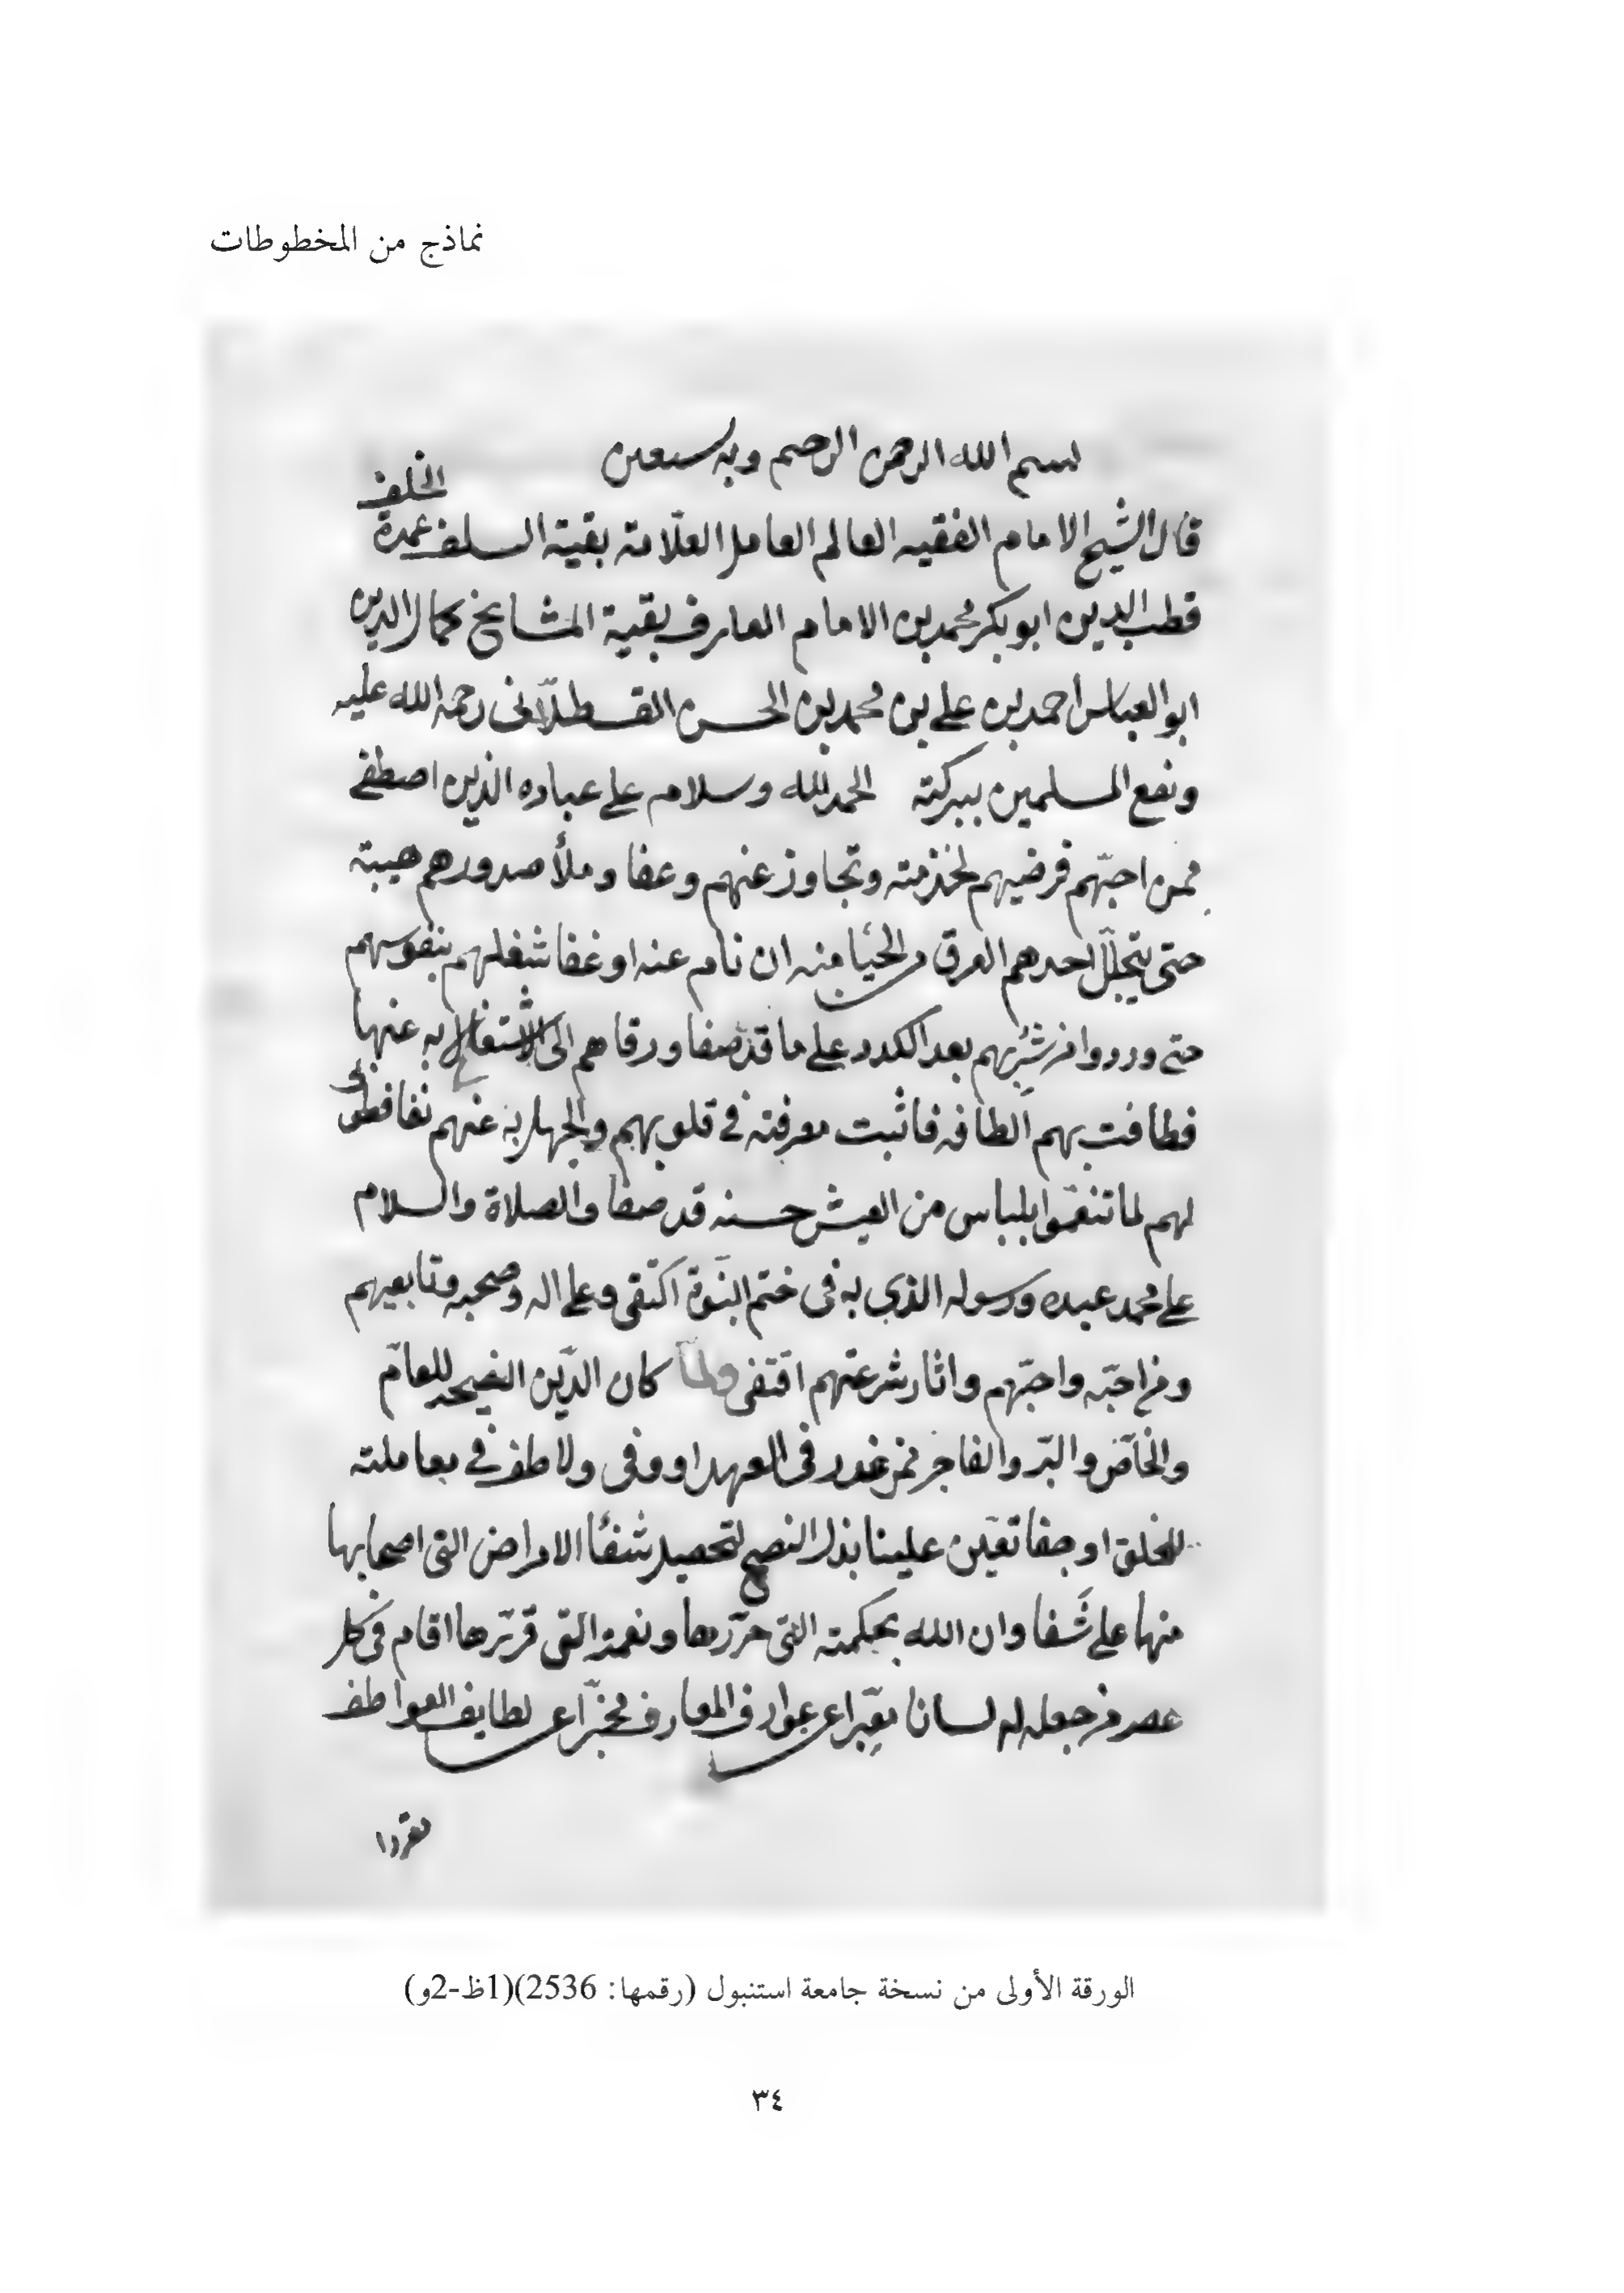 نماذج من المخطوطات
بسم الله الرحمن الرحيم وبه نستعين
قال الشيخ الامام الفقيه العالم العامل العلّامة بقية السلف عمدة الخلف
قطب الدين ابو بكر محمد بن الامام العارف بقية المشايخ كمال الدين
ابو العباس احمد بن على بن محمد بن الحسن القسطلّانى رحمة الله عليه
ونفع المسلمين ببركته الحمد لله وسلام على عباده الذين اصطفى
ممن احبّهم فرضيهم لخدمته وتجاوز عنهم وعفا وملأ صدورهم هيبته
حتى يتجلّل احدهم العرق من الحيا منه ان نام عنه او غفا شغلهم بنفوسهم
حتى وردوا من شربهم بعد الكدر على ما قد صفا ورقاهم الى الاشتغال به عنها
فطافت بهم الطافه فاثبت معرفته في قلوبهم والجهل به عنهم نفا فطوبى
لهم لما تنعّموا بلباس من العيش حسنه قد صفا والصلاة والسلام
على محمد عبده ورسوله الذي به فى ختم النبوّة اكتفى وعلى اله وصحبه وتابعيهم
ومن احبّه واحبّهم واثار شرعتهم اقتفى ولمّا كان الدّين النصيحه للعامّ
والخاصّ والبرّ والفاجر ممن غدر فى العهد او وفى ولاطف في معاملته
للخلق او جفا تعيّن علينا بذل النصح لتحصيل شفاء الامراض التى اصحابها
منها على شفا وان الله بحكمته التى حرّرها ونعمته التى قرّرها اقام فى كل
عصر من جعله له لسانا معبّرا عن عوارف المعارف مخبرا عن لطايف العواطف
الورقة الأولى من نسخة جامعة استنبول (رقمها: 2536)(1ظ-2و)
٣٤